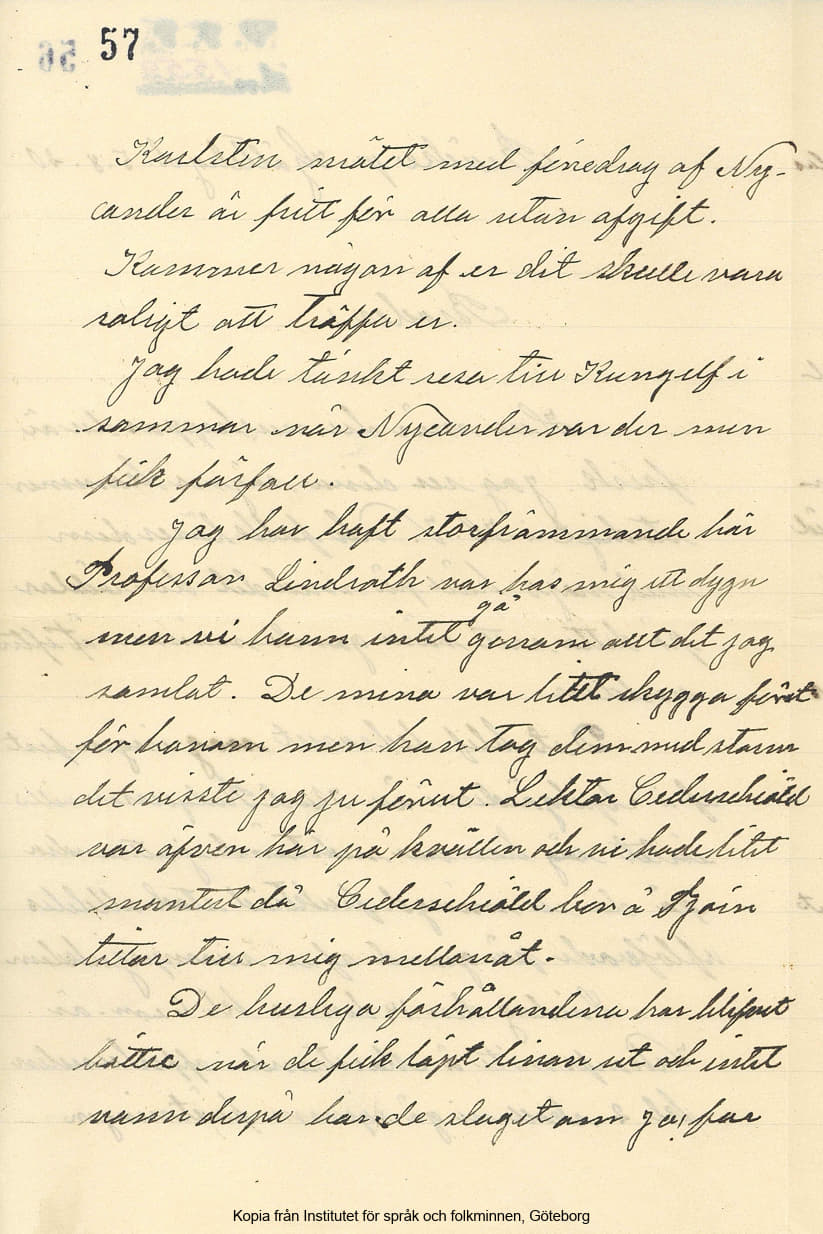 57
Karlsten mötet med föredrag af Ny-
cander är fritt för alla utan afgift.
Kommer någon af er dit skulle vara
roligt att träffa er.
Jag hade tänkt resa till Kungelf i
sommar när Nycander var der men
fick förfall.
Jag har haft storfrämmande här
Professor Lindroth var hos mig ett dygn
gå
men vi hann intet genom allt det jag
samlat. De mina var litet skygga först
för honom men han tog dem med storm
det visste jag ju förut. Lektor Cederschiöld
var äfven här på kvällen och vi hade litet
muntert då Cederschiöld bor å Tjörn
tittar till mig mellanåt.
De husliga förhållandena har blifvit
bättre när de fick löpt linan ut och intet
vann derpå har de slaget om ja, far
Kopia från Institutet för språk och folkminnen, Göteborg